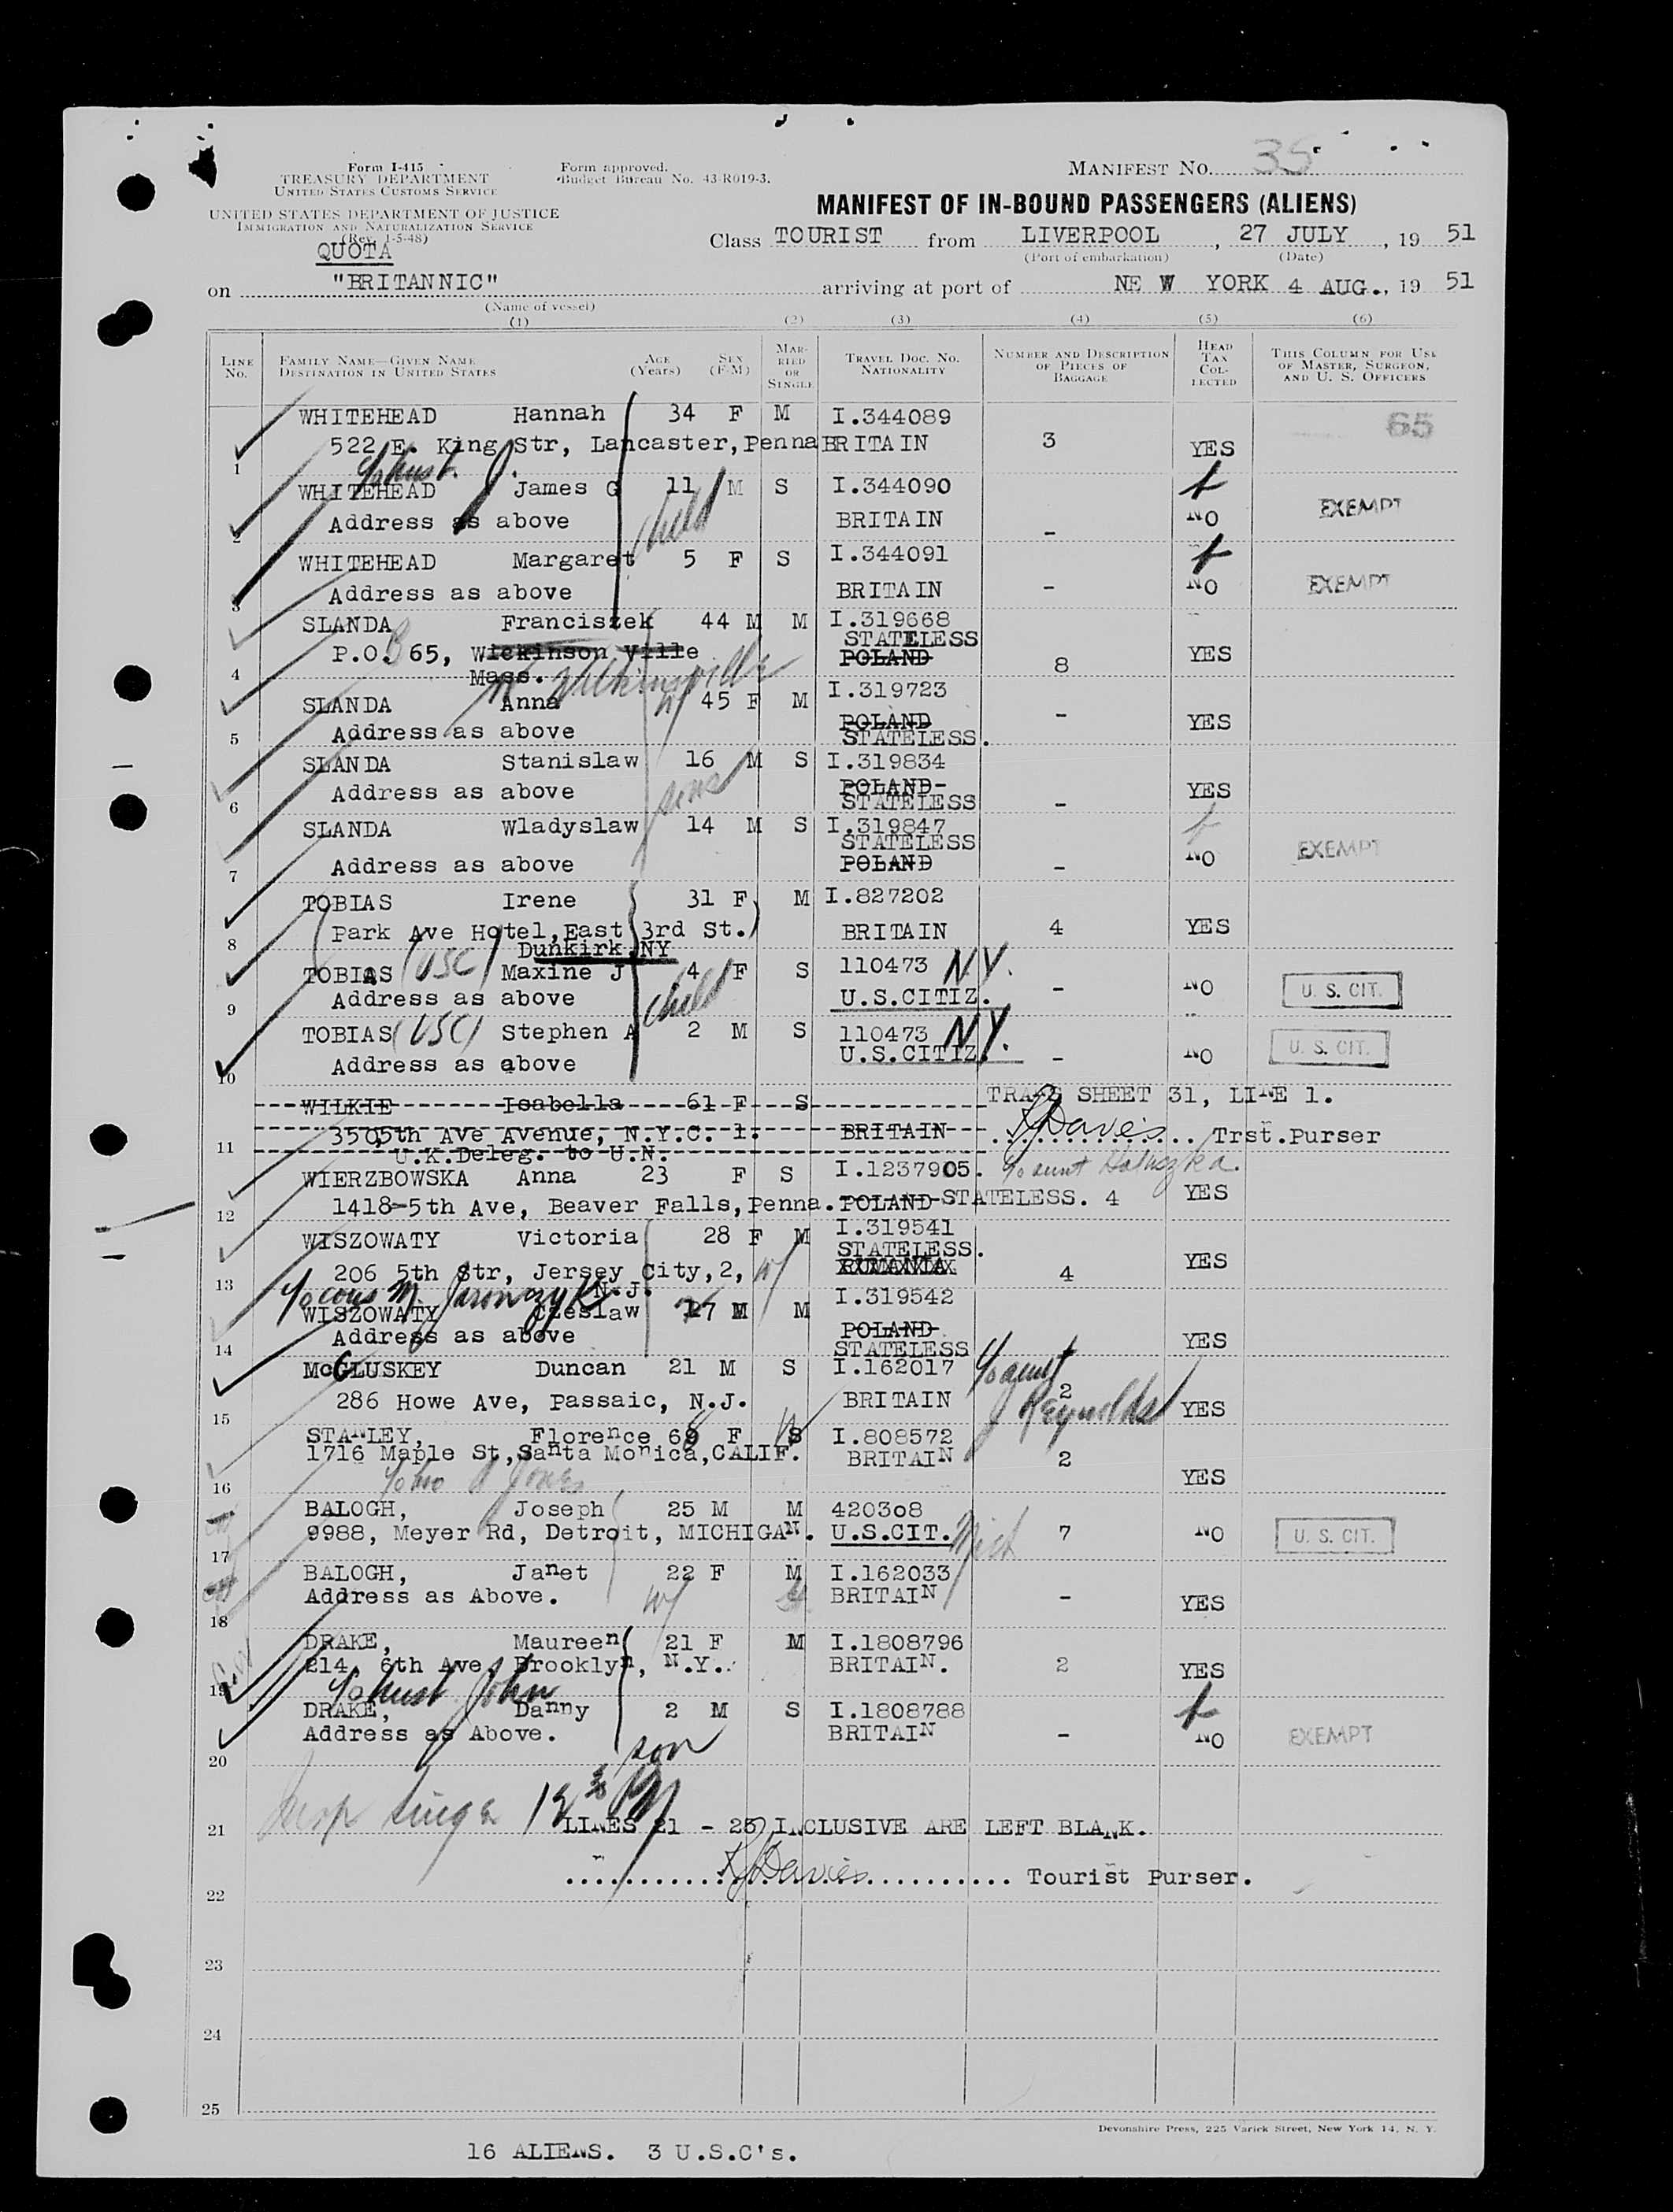 Form I-415
TREASURY DEPARTMENT
UNITED STATES CUSTOMS SERVICE
UNITED STATES DEPARTMENT OF JUSTICE
IMMIGRATION AND NATURALIZATION SERVICE
(Rev. 1-5-48)
Form approved.
Budget Bureau No. 43-R019-3.
MANIFEST No. 35
MANIFEST OF IN-BOUND PASSENGERS (ALIENS)
QUOTA
Class TOURIST from LIVERPOOL, 27 JULY, 19 51
(Port of embarkation) (Date)
on "BRITANNIC" arriving at port of NE W YORK 4 AUG., 19 51
(Name of vessel)
(1) (2) (3) (4) (5) (6)
LINE No. FAMILY NAME—GIVEN NAME DESTINATION IN UNITED STATES AGE (Years) SEX (F-M) MARRIED OR SINGLE TRAVEL DOC. No. NATIONALITY NUMBER AND DESCRIPTION OF PIECES OF BAGGAGE HEAD TAX COLLECTED THIS COLUMN FOR USE OF MASTER, SURGEON, AND U. S. OFFICERS
WHITEHEAD Hannah 34 F M I.344089 65
1 522 E. King Str, Lancaster,Penna BRITAIN 3 YES
c/o hust. J.
WHITEHEAD James G 11 M S I.344090
2 Address as above child BRITAIN - NO EXEMPT
WHITEHEAD Margaret 5 F S I.344091
3 Address as above BRITAIN - NO EXEMPT
SLANDA Franciszek 44 M M I.319668
STATELESS
4 P.O.B 65, Wickinson Ville POLAND 8 YES
Mass. Wilkinsville
SLANDA Anna w/ 45 F M I.319723
5 Address as above POLAND - YES
STATELESS.
SLANDA Stanislaw 16 M S I.319834
6 Address as above sons POLAND- - YES
STATELESS
SLANDA Wladyslaw 14 M S I.319847
STATELESS
7 Address as above POLAND - NO EXEMPT
TOBIAS Irene 31 F M I.827202
8 Park Ave Hotel,East 3rd St. BRITAIN 4 YES
Dunkirk NY
TOBIAS (USC) Maxine J 4 F S 110473 N.Y.
9 Address as above child U.S.CITIZ. - NO U. S. CIT.
TOBIAS (USC) Stephen A 2 M S 110473 N.Y.
10 Address as above U.S.CITIZ. - NO U. S. CIT.
WILKIE Isabella 61 F S TRANS SHEET 31, LINE 1.
11 350,5th Ave Avenue, N.Y.C. 1. BRITAIN RJDavies Trst.Purser
U.K.Deleg. to U.N.
WIERZBOWSKA Anna 23 F S I.1237905. c/o aunt
12 1418-5th Ave, Beaver Falls,Penna. POLAND STATELESS. 4 YES
WISZOWATY Victoria 28 F M I.319541
STATELESS.
13 206 5th Str, Jersey City,2, w/ RUMANIA 4 YES
N.J.
c/o cous M. Jaronczyk
WISZOWATY Czeslaw 27 M M I.319542
14 Address as above POLAND YES
STATELESS
McGLUSKEY Duncan 21 M S I.162017 c/o aunt
15 286 Howe Ave, Passaic, N.J. BRITAIN 2 J Reynolds YES
STANLEY, Florence 68 F I.808572
16 1716 Maple St,Santa Monica,CALIF. BRITAIN 2 YES
c/o bro A Jones
BALOGH, Joseph 25 M M 420308
17 9988, Meyer Rd, Detroit, MICHIGAN. U.S.CIT. Mich 7 NO U. S. CIT.
BALOGH, Janet 22 F M I.162033
18 Address as Above. w/ BRITAIN - YES
DRAKE, Maureen 21 F M I.1808796
19 214, 6th Ave, Brooklyn, N.Y. BRITAIN. 2 YES
c/o hust John
DRAKE, Danny 2 M S I.1808788
20 Address as Above. BRITAIN - NO EXEMPT
son
Insp
21 LINES 21 - 25 INCLUSIVE ARE LEFT BLANK.
RJDavies Tourist Purser.
22
23
24
25
Devonshire Press, 225 Varick Street, New York 14, N. Y.
16 ALIENS. 3 U.S.C's.